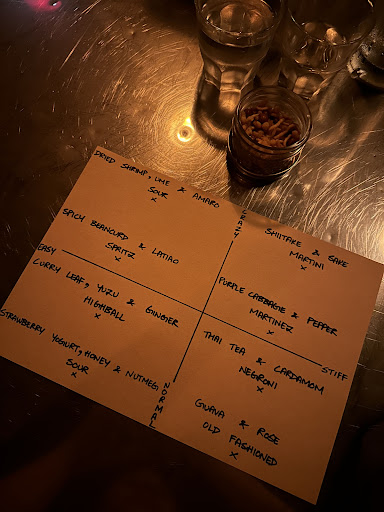 DRIED SHRIMP, UME & AMARO
SOUR
x
SPICY BEANCURD & LATIAO
SPRITZ
x
CRAZY
SHIITAKE & SAKE
MARTINI
x
PURPLE CABBAGE & PEPPER
MARTINEZ
x
EASY
STIFF
CURRY LEAF, YUZU & GINGER
HIGHBALL
x
STRAWBERRY YOGURT, HONEY & NUTMEG
SOUR
x
NORMAL
THAI TEA & CARDAMOM
NEGRONI
x
GUAVA & ROSE
OLD FASHIONED
x